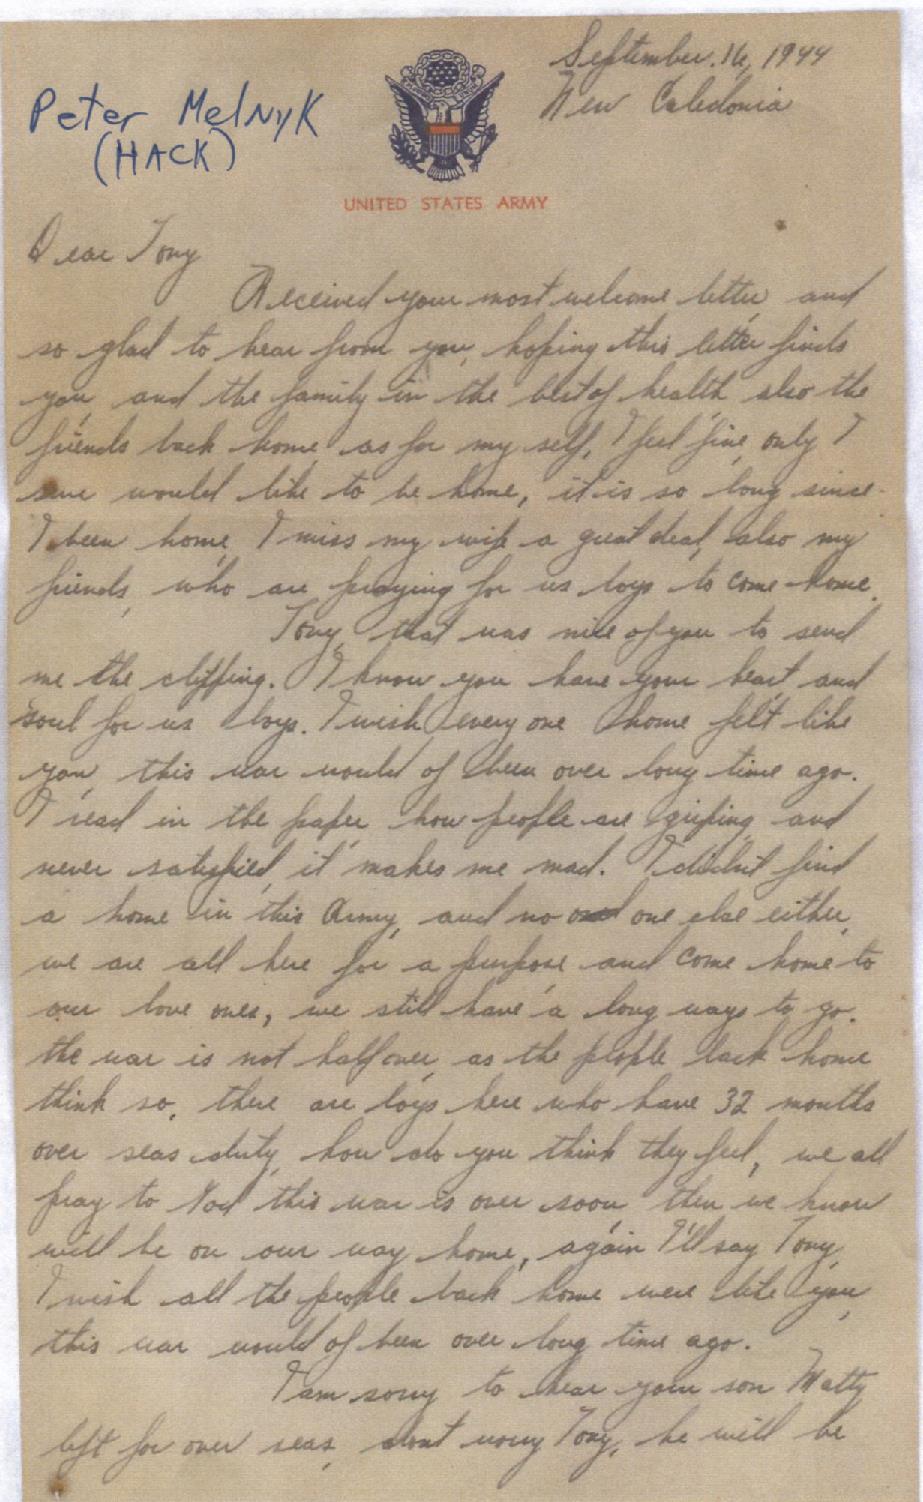 September. 16, 1944
New Caledonia
Peter Melnyk
(HACK)
UNITED STATES ARMY
Dear Tony
Received your most welcome letter, and
so glad to hear from you, hoping this letter finds
you, and the family in the best of health also the
friends back home, as for my self, I feel fine, only I
sure would like to be home, it is so long since
I been home, I miss my wife a great deal, also my
friends, who are praying for us boys to come home.
Tony, that was nice of you to send
me the clipping. I know you have your heart and
soul for us boys. I wish every one home felt like
you, this war would of been over long time ago.
I read in the paper how people are griping, and
never satisfied, it makes me mad. I didn't find
a home in this Army, and no one else either,
we are all here for a purpose and come home to
our love ones, we still have a long ways to go.
the war is not half over, as the people back home
think so, there are boys here who have 32 months
over seas duty, how do you think they feel, we all
pray to God this war is over soon then we know
will be on our way home, again I'll say Tony,
I wish all the people back home were like you,
this war would of been over long time ago.
I am sorry to hear your son Matty
left for over seas, dont worry Tony, he will be